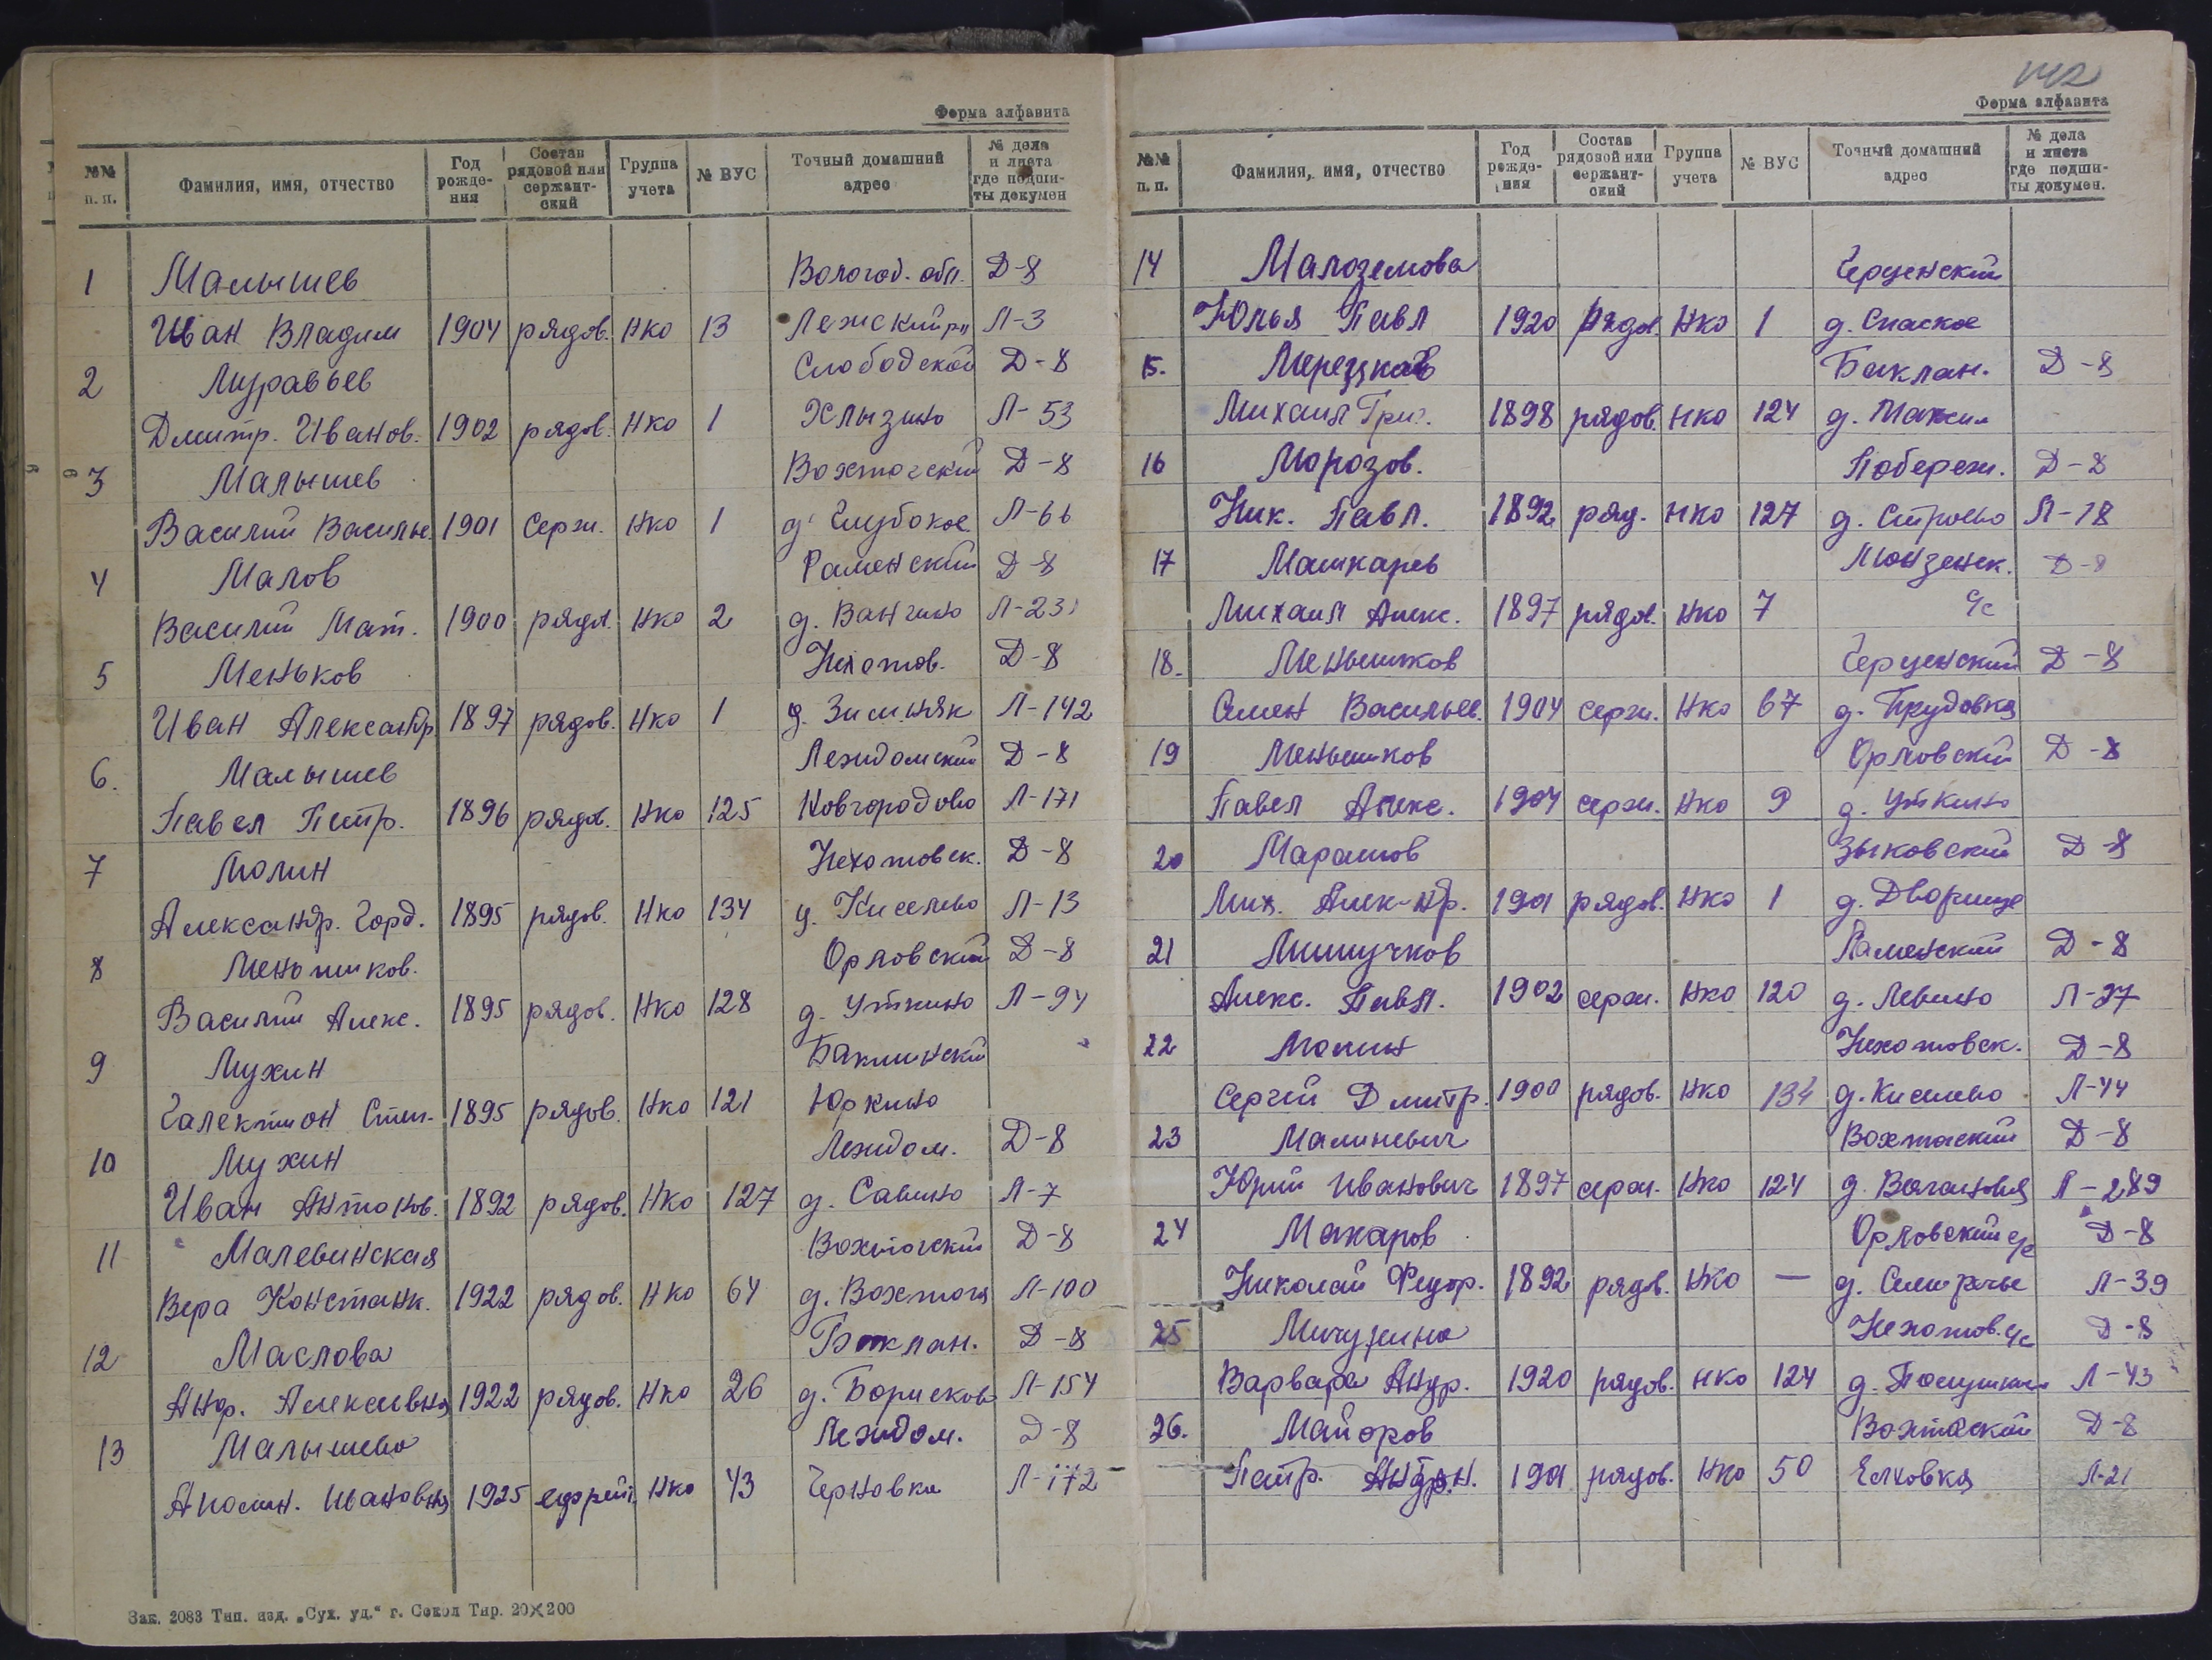 Форма алфавита
№№ п. п. Фамилия, имя, отчество Год рождения Состав рядовой или сержантский Группа учета № ВУС Точный домашний адрес № дела и листа где подшиты докумен
1 Малышев Вологод. обл. Д-8
Иван Владим 1904 рядов. НКО 13 Лежский рн Л-3
2 Муравьев Слободской Д-8
Дмитр. Иванов. 1902 рядов. НКО 1 Хлызино Л-53
3 Малышев Вохтогский Д-8
Василий Василье 1901 Серж. НКО 1 д. Глубокое Л-66
4 Малов Раменский Д-8
Василий Мат. 1900 рядов. НКО 2 д. Вангино Л-231
5 Меньков Нехотов. Д-8
Иван Александр 1897 рядов. НКО 1 д. Зимняк Л-142
6. Малышев Леждомский Д-8
Павел Петр. 1896 рядов. НКО 125 Новгородово Л-171
7 Молин Нехотовск. Д-8
Александр. Горд. 1895 рядов. НКО 134 д. Киселево Л-13
8 Меньшиков. Орловский Д-8
Василий Алекс. 1895 рядов. НКО 128 д. Уткино Л-94
9 Мухин Баклинский
Галектион Степ. 1895 рядов. НКО 121 Юркино
10 Мухин Леждом. Д-8
Иван Антонов. 1892 рядов. НКО 127 д. Савино Л-7
11 Малевинская Вохтогский Д-8
Вера Констанк. 1922 рядов. НКО 64 д. Вохтога Л-100
12 Маслова Баклан. Д-8
Анф. Алексевна 1922 рядов. НКО 26 д. Борисково Л-154
13 Малышева Леждом. Д-8
Аполин. Ивановна 1925 ефрейт. НКО 43 Черновка Л-172
Зак. 2083 Тип. изд. „Сух. уд.“ г. Сокол Тир. 20×200
142
Форма алфавита
№№ п. п. Фамилия, имя, отчество Год рождения Состав рядовой или сержантский Группа учета № ВУС Точный домашний адрес № дела и листа где подшиты докумен.
14 Малоземова Герценский
Юлья Павл 1920 рядов. НКО 1 д. Спаское
15. Мерезков Баклан. Д-8
Михаил Гри. 1898 рядов. НКО 124 д. Максим
16 Морозов. Побереж. Д-8
Ник. Павл. 1892 ряд. НКО 127 д. Строево Л-18
17 Машкарев Монзенск. Д-8
Михаил Алекс. 1897 рядов. НКО 7 с/с
18. Меньшиков Герценский Д-8
Семен Васильев. 1904 серж. НКО 67 д. Прудовка
19 Меньшиков Орловский Д-8
Павел Алекс. 1904 серж. НКО 9 д. Уткино
20 Марашов Зыковский Д-8
Мих. Алек-др. 1901 рядов. НКО 1 д. Дворище
21 Мишучков Раменский Д-8
Алекс. Павл. 1902 серж. НКО 120 д. Левино Л-27
22 Молин Нехотовск. Д-8
Сергей Дмитр. 1900 рядов. НКО 134 д. Киселево Л-44
23 Малиневич Вохтогский Д-8
Юрий Иванович 1897 серж. НКО 124 д. Вагановка Л-289
24 Макаров Орловский с/с Д-8
Николай Федор. 1892 рядов. НКО — Л-39
25 Мичурина Нехотов. с/с Д-8
Варвара Андр. 1920 рядов. НКО 124 Л-43
26. Майоров Вохтогский Д-8
Петр. Андрн. 1901 рядов. НКО 50 Елховка Л-21